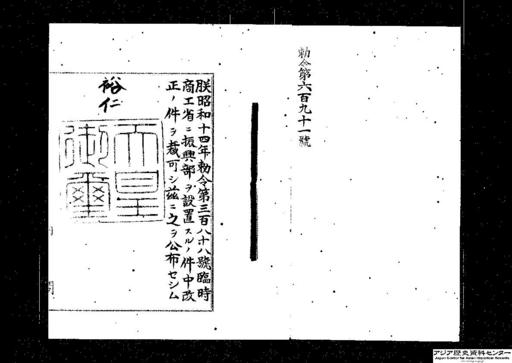 勅令第六百九十一號
朕昭和十四年勅令第三百八十八號臨時
商工省ニ振興部ヲ設置スルノ件中改
正ノ件ヲ裁可シ茲ニ之ヲ公布セシム
裕仁
天皇
御璽
アジア歴史資料センター
Japan Center for Asian Historical Records